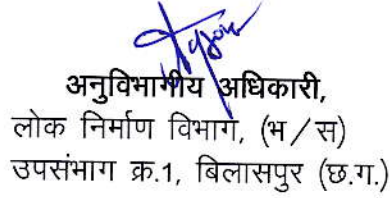 अनुविभागीय अधिकारी,
लोक निर्माण विभाग, (भ/स)
उपसंभाग क्र.1, बिलासपुर (छ.ग.)